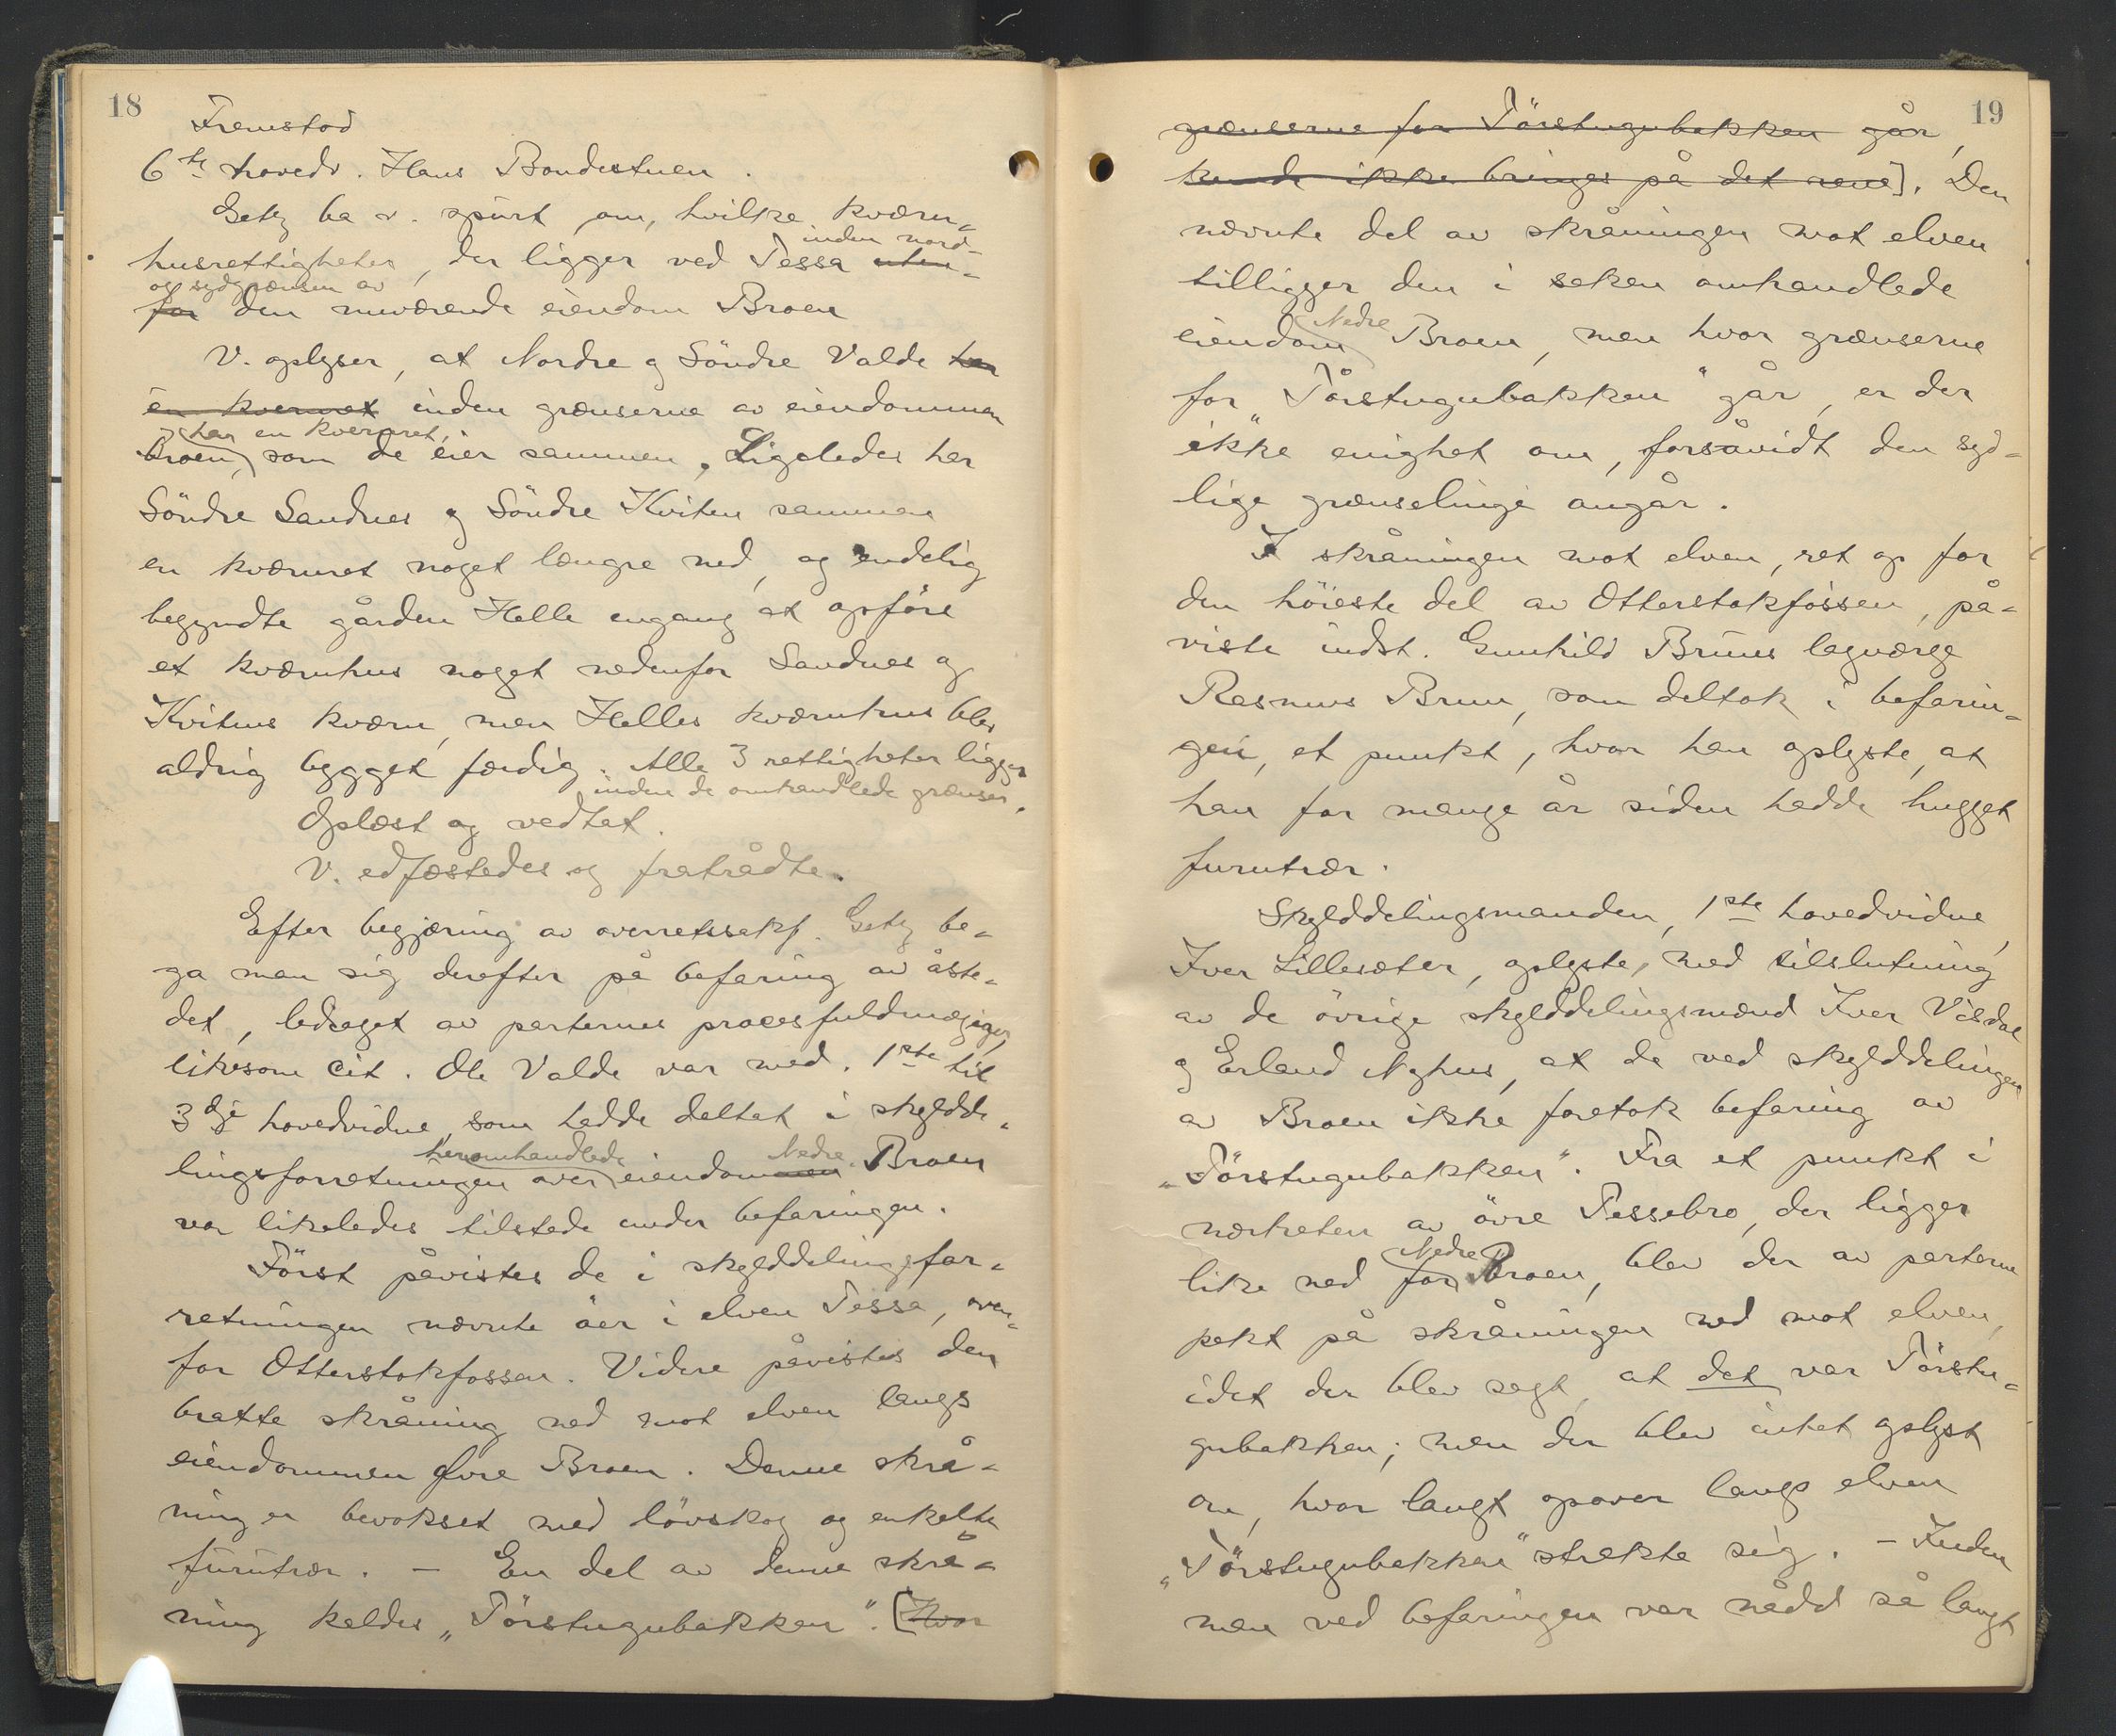 18
Fremstod
6te hovedv. Hans Bondestuen.
Getz ba v. spurt om, hvilke kværn-
husrettigheter, der ligger ved Tessa uten- inden nord-
for og sydgrænsen av den nuværende eiendom Broen
V. oplyser, at Nordre og Söndre Valde har
en kvernret inden grænserne av eiendommen
Broen, har en kvernret, som de eier sammen. Ligeledes har
Söndre Sandnes og Söndre Kviten sammen
en kværnret noget længre ned, og endelig
begyndte gården Helle engang at opføre
et kværnhus noget nedenfor Sandnes og
Kvitens kværn, men Helles kværnhus blev
aldrig bygget færdig. Alle 3 rettigheter ligger
inden de omhandlede grænser.
Oplæst og vedtat.
V. edfæstedes og fratrådte.
Efter begjæring av overretssakf. Getz be-
ga man sig derefter på befaring av åste-
det, ledsaget av parternes procesfuldmægtiger,
likesom cit. Ole Valde var med. 1ste til
3dje hovedvidne, som hadde deltat i skyldde-
lingsforretningen over heromhandlede eiendommen Nedre Broen
var likeledes tilstede under befaringen.
Först påvistes de i skylddelingsfor-
retningen nævnte öer i elven Tessa, oven-
for Otterstokfossen. Videre påvistes den
bratte skråning ned mot elven langs
eiendommen Övre Broen. Denne skrå-
ning er bevokset med lövskog og enkelte
furutrær. – En del av denne skrå-
ning kaldes „Törstugubakken". [Hvor
19
grænserne for Törstugubakken går,
kunde ikke bringes på det rene]. Den
nævnte del av skråningen mot elven
tilligger den i saken omhandlede
eiendom Nedre Broen, men hvor grænserne
for „Törstugubakken" går, er der
ikke enighet om, forsåvidt den syd-
lige grænselinje angår.
I skråningen mot elven, ret op for
den höieste del av Otterstokfossen, på-
viste indst. Gunhild Bruns lagværge
Rasmus Brun, som deltok i befarin-
gen, et punkt, hvor han oplyste, at
han for mange år siden hadde hugget
furutrær.
Skylddelingsmanden, 1ste hovedvidne,
Iver Lillesæter, oplyste, med tilslutning
av de övrige skylddelingsmænd Iver Visdal
og Erland Nyhus, at de ved skylddelingen
av Broen ikke foretok befaring av
„Törstugubakken". Fra et punkt i
nærheten av övre Tessebro, der ligger
like ned for Nedre Broen, blev der av parterne
pekt på skråningen ned mot elven,
idet der blev sagt, at det var Törstu-
gubakken; men der blev intet oplyst
om, hvor langt opover langs elven
„Törstugubakken" strakte sig. – Inden
man ved befaringen var nådd så langt